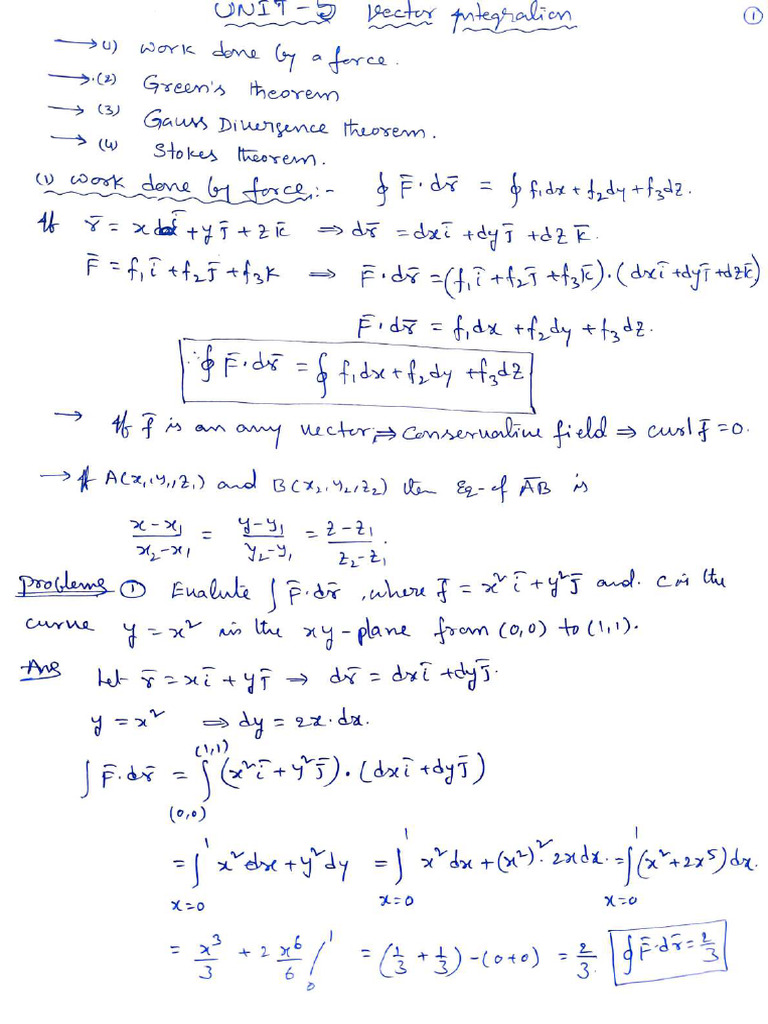 UNIT-5 Vector Integration ①
→(1) Work done by a force.
→(2) Green's theorem
→(3) Gauss Divergence theorem.
→(4) Stokes theorem.
(1) Work done by force:- ∮ F̄·dr̄ = ∮ f₁dx + f₂dy + f₃dz.
If r̄ = x ī + y j̄ + z k̄ ⇒ dr̄ = dx ī + dy j̄ + dz k̄.
F̄ = f₁ī + f₂j̄ + f₃k ⇒ F̄·dr̄ = (f₁ī + f₂j̄ + f₃k̄)·(dxī + dyj̄ + dzk̄)
F̄·dr̄ = f₁dx + f₂dy + f₃dz.
∴ ∮ F̄·dr̄ = ∮ f₁dx + f₂dy + f₃dz
→ If f̄ is an any vector ⇒ Conservative field ⇒ curl f̄ = 0.
→ If A(x₁, y₁, z₁) and B(x₂, y₂, z₂) then Eq-of AB is
(x-x₁)/(x₂-x₁) = (y-y₁)/(y₂-y₁) = (z-z₁)/(z₂-z₁).
Problems ① Evaluate ∫ F̄·dr̄, where f̄ = x²ī + y²j̄ and C is the
curve y = x² in the xy-plane from (0,0) to (1,1).
Ans Let r̄ = xī + yj̄ ⇒ dr̄ = dxī + dyj̄.
y = x² ⇒ dy = 2x·dx.
∫ F̄·dr̄ = ∫_(0,0)^(1,1) (x²ī + y²j̄)·(dxī + dyj̄)
= ∫_{x=0}^1 x²dx + y²dy = ∫_{x=0}^1 x²dx + (x²)²·2xdx. = ∫_{x=0}^1 (x² + 2x⁵)dx.
= x³/3 + 2 x⁶/6 /₀¹ = (1/3 + 1/3) - (0+0) = 2/3. ∮ F̄·dr̄ = 2/3